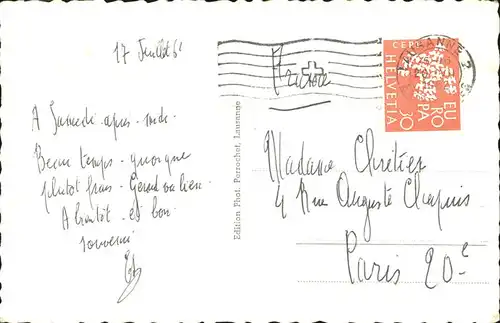 17 Juillet 61
A Samedi - après - midi.
Beau temps - quoique
plutôt frais -
A bientôt - et bon
souvenir
Edition Phot. Perrochet, Lausanne
France
LAUSANNE 2
CEPT
HELVETIA
EUROPA
30
Madame Chrétien
4 Rue Auguste Chapuis
Paris 20e